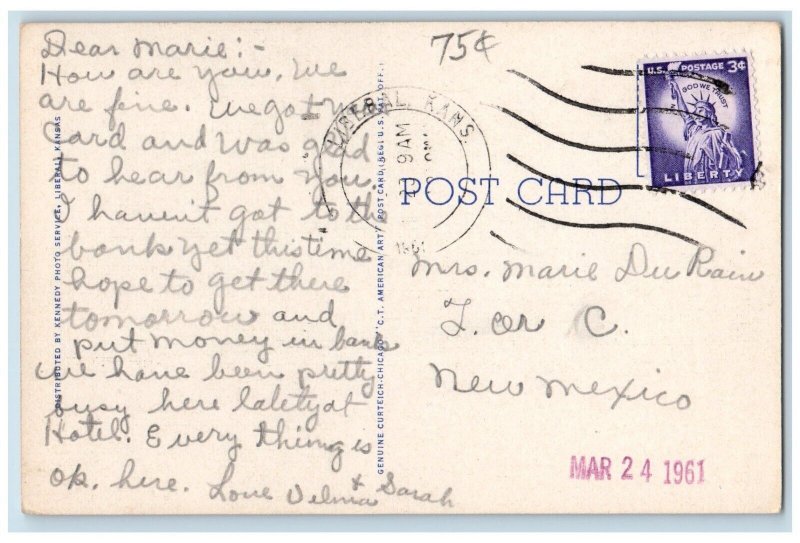 Dear Marie:-
How are you, we
are fine. We got
card and was glad
to hear from you.
I haven't got to the
bank yet this time
hope to get there
tomorrow and
put money in bank
we have been pretty
busy here latety at
Hotel. Every thing is
ok. here. Love Velma & Sarah
DISTRIBUTED BY KENNEDY PHOTO SERVICE, LIBERAL, KANSAS
GENUINE CURTEICH-CHICAGO "C.T. AMERICAN ART" POST CARD (REG. U.S. PAT. OFF.)
75¢
LIBERAL, KANS.
9 AM
1961
U.S. POSTAGE 3¢
IN GOD WE TRUST
LIBERTY
POST CARD
Mrs. Marie Du Rain
T. or C.
New Mexico
MAR 24 1961